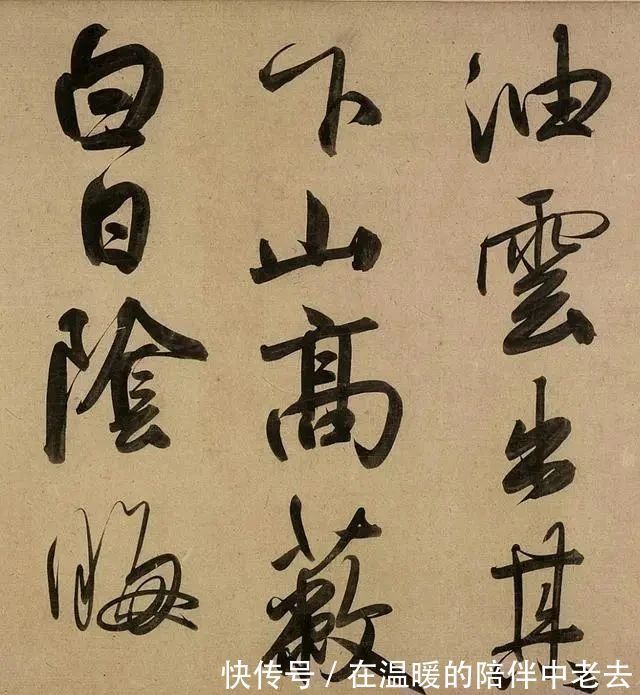 油雲出其
下山高蔽
白日陰晦
快传号/在温暖的陪伴中老去